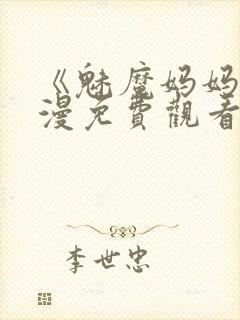 《魅魔妈妈
漫免費觀看
李世忠